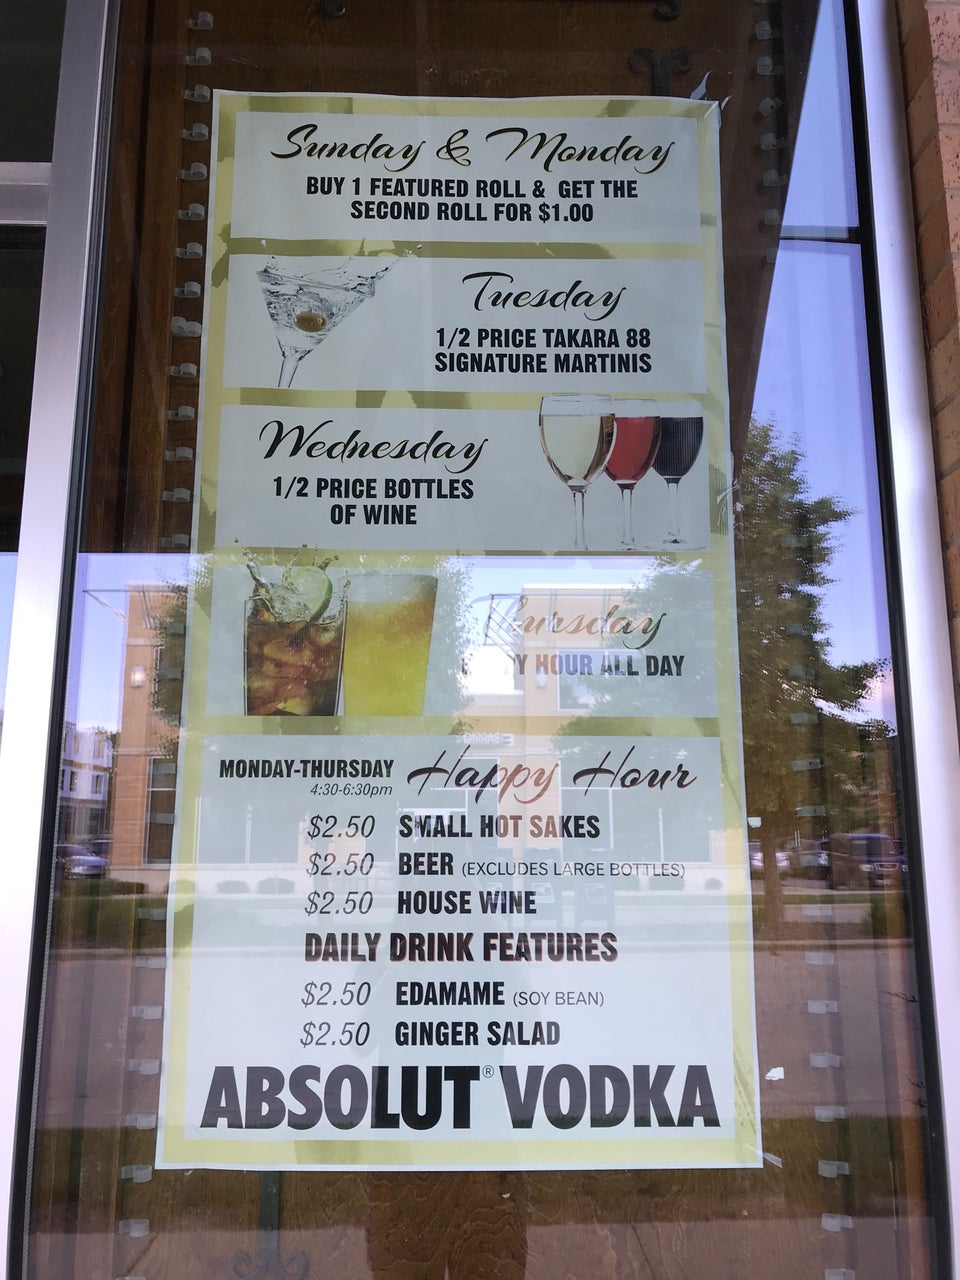 Sunday & Monday
BUY 1 FEATURED ROLL & GET THE
SECOND ROLL FOR $1.00
Tuesday
1/2 PRICE TAKARA 88
SIGNATURE MARTINIS
Wednesday
1/2 PRICE BOTTLES
OF WINE
Thursday
HAPPY HOUR ALL DAY
MONDAY-THURSDAY Happy Hour
4:30-6:30pm
$2.50 SMALL HOT SAKES
$2.50 BEER (EXCLUDES LARGE BOTTLES)
$2.50 HOUSE WINE
DAILY DRINK FEATURES
$2.50 EDAMAME (SOY BEAN)
$2.50 GINGER SALAD
ABSOLUT® VODKA